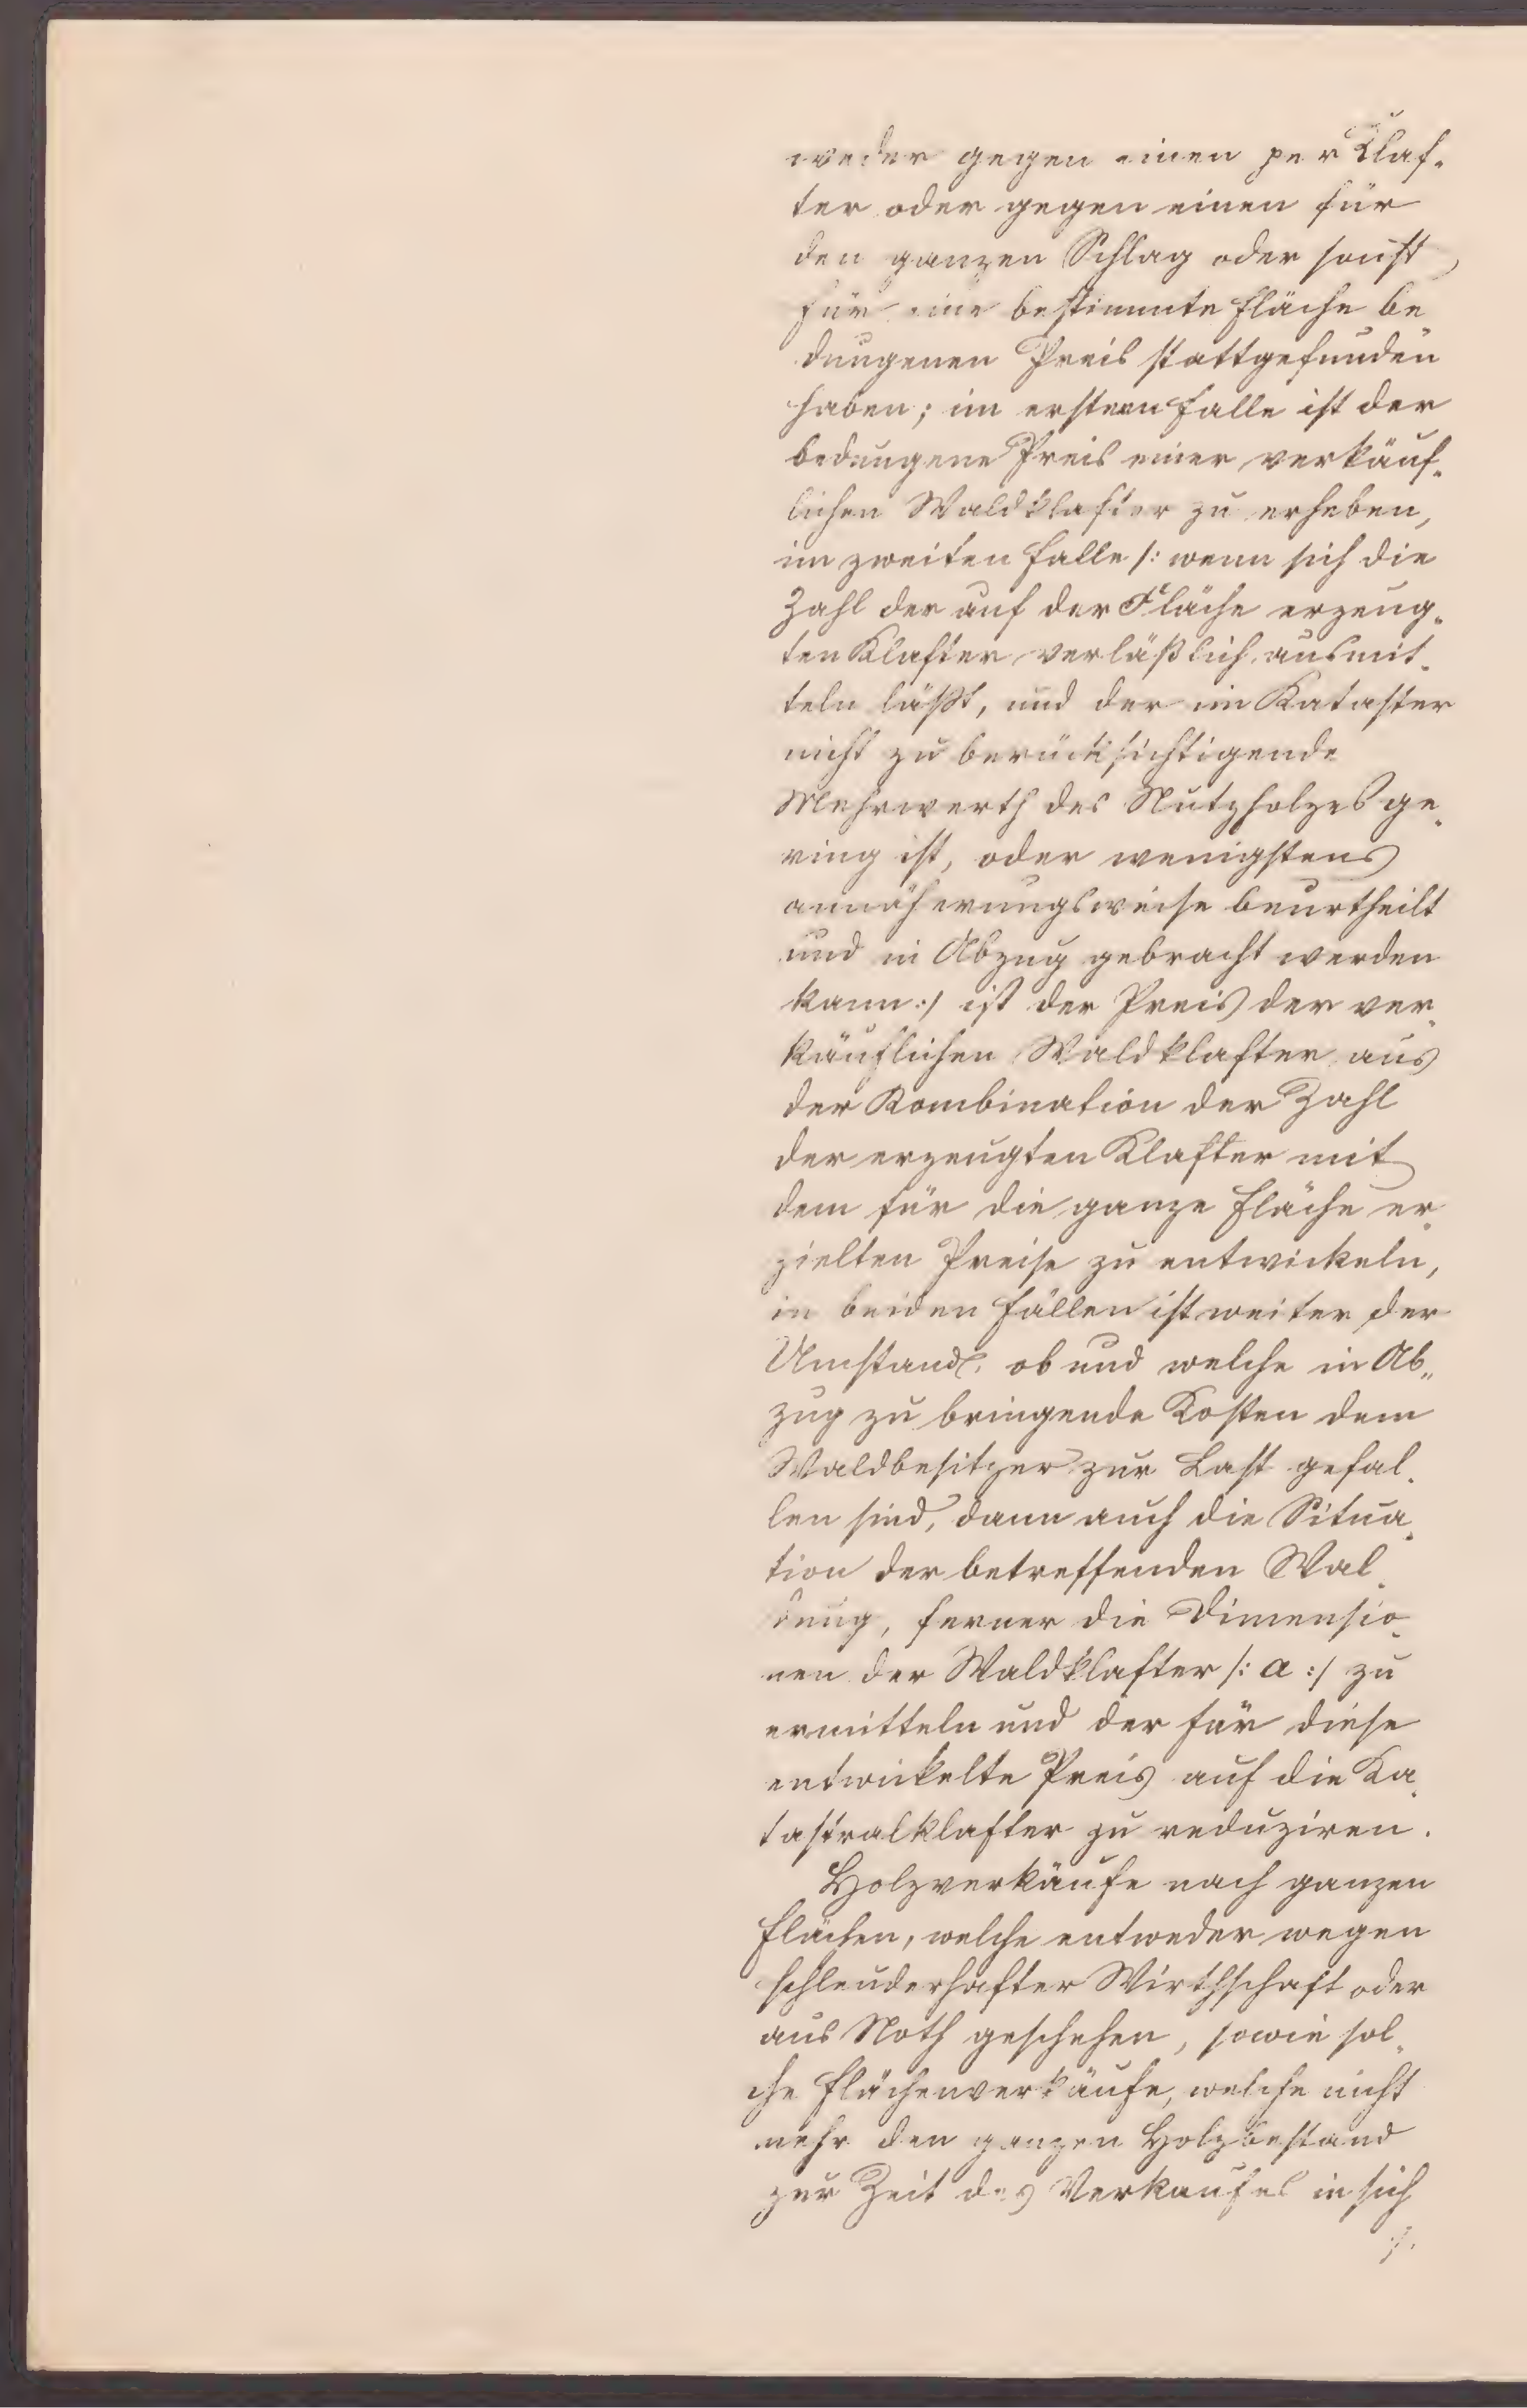 weder gegen einen per Klaf-
ter oder gegen einen für
den ganzen Schlag oder sonst
für eine bestimmte Fläche be-
dungenen Preis stattgefunden
haben; im erstern Falle ist der
bedungene Preis einer verkäuf-
lichen Waldklafter zu erheben,
im zweiten Falle /: wenn sich die
Zahl der auf der Fläche erzeug-
ten Klafter verläßlich ausmit-
teln läßt, und der im Kataster
nicht zu berücksichtigende
Mehrwerth des Nutzholzes ge-
ring ist, oder wenigstens
annäherungsweise beurtheilt
und in Abzug gebracht werden
kann :/ ist der Preis der ver-
käuflichen Waldklafter aus
der Kombination der Zahl
der erzeugten Klafter mit
dem für die ganze Fläche er-
zielten Preise zu entwickeln,
in beiden Fällen ist weiter der
Umstand, ob und welche in Ab-
zug zu bringende Kosten dem
Waldbesitzer zur Last gefal-
len sind, dann auch die Situa-
tion der betreffenden Wal-
dung, ferner die Dimensio-
nen der Waldklafter /: a :/ zu
ermitteln und der für diese
entwickelte Preis auf die Ka-
tastralklafter zu reduziren.
Holzverkäufe nach ganzen
Flächen, welche entweder wegen
schleuderhafter Wirthschaft oder
aus Noth geschehen, sowie sol-
che Flächenverkäufe, welche nicht
mehr den ganzen Holzbestand
zur Zeit des Verkaufes in sich